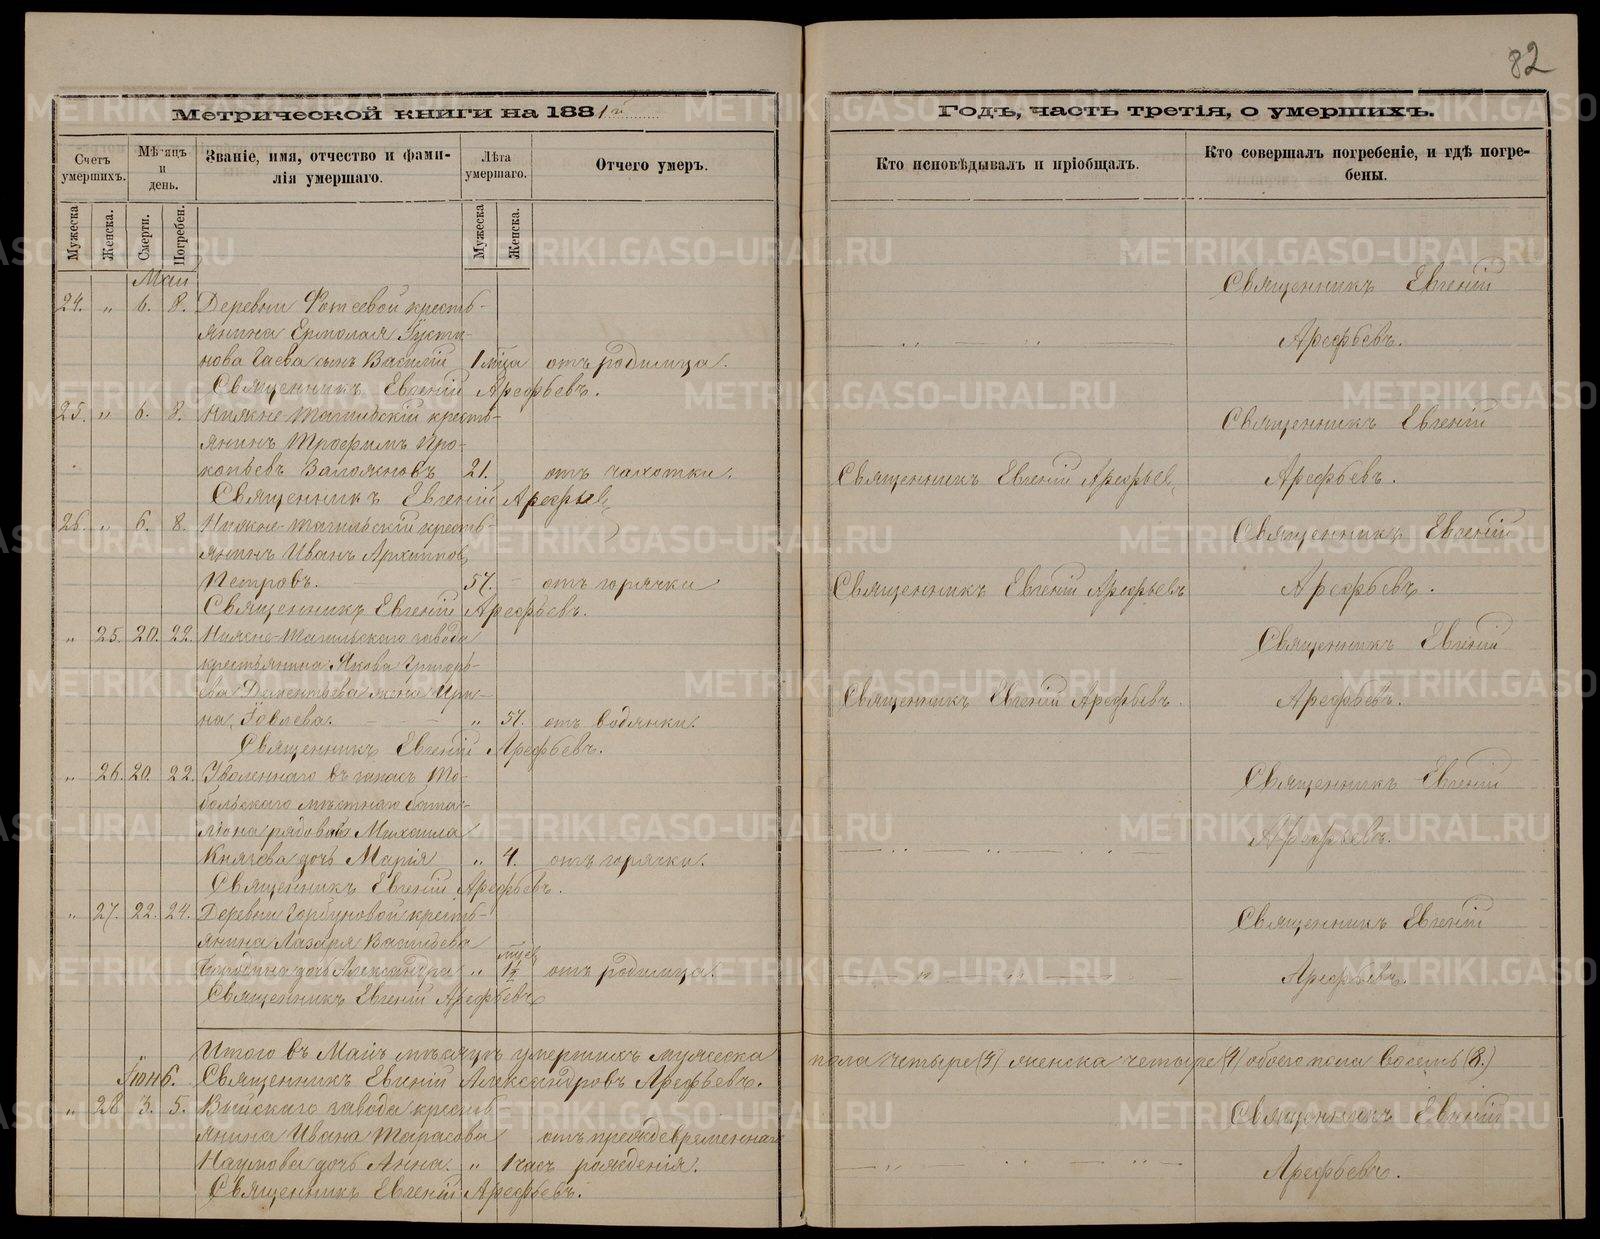 82
Метрической книги на 1881й
Годъ, часть третія, о умершихъ.
Счетъ умершихъ.
Мѣсяцъ и день.
Званіе, имя, отчество и фами-
лія умершаго.
Лѣта умершаго.
Отчего умеръ.
Кто исповѣдывалъ и пріобщалъ.
Кто совершалъ погребеніе, и гдѣ погре-
бены.
Мужеска
Женска.
Смерти.
Погребен.
Мужеска
Женска.
Май
24. „ 6. 8. Деревни кресть-
янина Ермолая
сынъ Василій 1 мѣсяца отъ родимца.
Священникъ Евгеній Арефьевъ.
Священникъ Евгеній
Арефьевъ.
25. „ 6. 8. Нижне-Тагильскій кресть-
янинъ Трофимъ Про-
копьевъ 21. отъ чахотки.
Священникъ Евгеній Арефьев
Священникъ Евгеній Арефьев
Священникъ Евгеній
Арефьевъ.
26. „ 6. 8. Нижне-Тагильскій кресть-
янинъ Иванъ Архиповъ
Петровъ. 57. отъ горячки
Священникъ Евгеній Арефьевъ.
Священникъ Евгеній Арефьевъ
Священникъ Евгеній
Арефьевъ.
„ 25. 20. 22. Нижне-Тагильскаго завода
крестьянина Якова Григорь-
ева Дементьева жена Ири-
на Іовлева. „ 57. отъ водянки.
Священникъ Евгеній Арефьевъ.
Священникъ Евгеній Арефьевъ.
Священникъ Евгеній
Арефьевъ.
„ 26. 20. 22. Уволеннаго въ запасъ То-
больскаго мѣстнаго бата-
ліона рядоваго Михаила
Князева дочь Марія „ 4. отъ горячки.
Священникъ Евгеній Арефьевъ.
Священникъ Евгеній
Арефьевъ.
„ 27. 22. 24. Деревни Горбуновой кресть-
янина Лазаря Васильева
дочь Александра „ 1½ мѣсяц отъ родимца.
Священникъ Евгеній Арефьевъ
Священникъ Евгеній
Арефьевъ.
Итого въ Маѣ мѣсяцѣ умершихъ мужеска пола четыре (4) женска четыре (4) обоего пола восемь (8.)
Священникъ Евгеній Александровъ Арефьевъ.
Іюнь.
„ 28 3. 5. Выйскаго завода кресть
янина Ивана Тарасова отъ преждевременнаго
Наумова дочь Анна. „ 1 часъ рожденія.
Священникъ Евгеній Арефьевъ.
Священникъ Евгеній
Арефьевъ.
METRIKI.GASO-URAL.RU